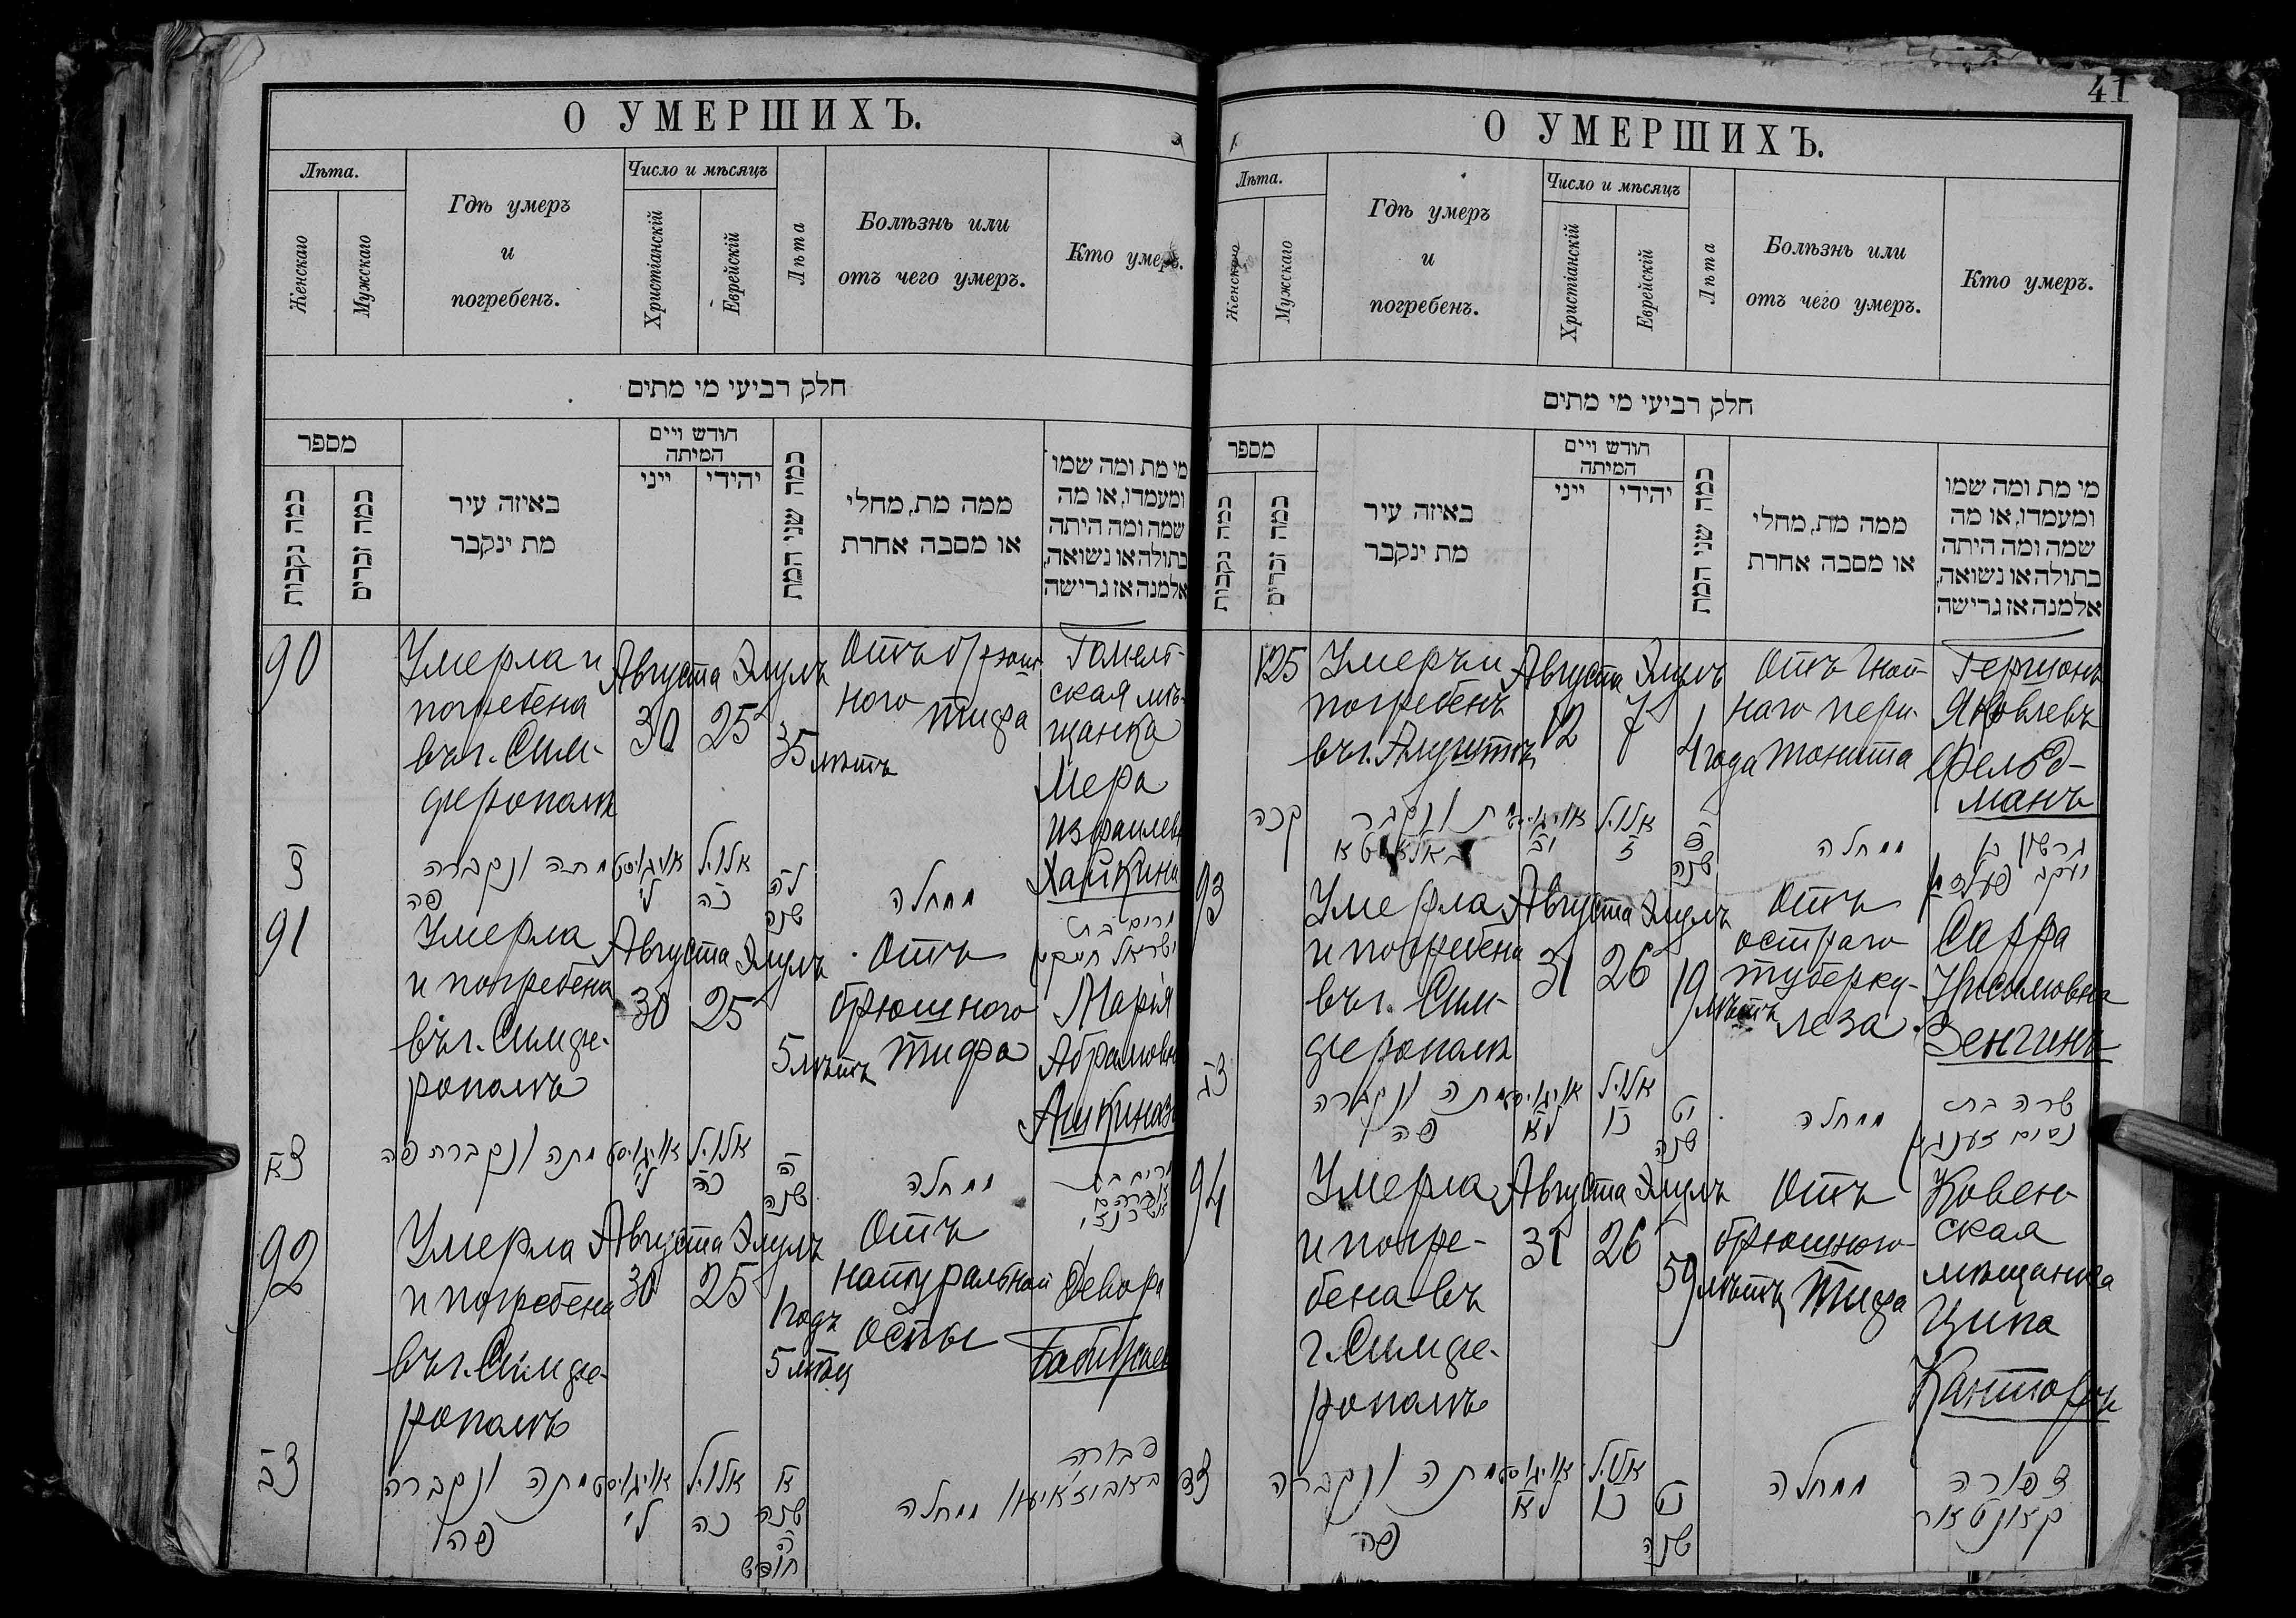 О УМЕРШИХЪ.
Лѣта.
Женскаго
Мужскаго
Гдѣ умеръ
и
погребенъ.
Число и мѣсяцъ
Христіанскій
Еврейскій
Лѣта
Болѣзнь или
отъ чего умеръ.
Кто умеръ.
חלק רביעי מי מתים
מספר
כמה נקבות
כמה זכרים
באיזה עיר
מת ינקבר
חודש ויים
המיתה
ייני
יהידי
כמה שני המת
ממה מת, מחלי
או מסבה אחרת
מי מת ומה שמו
ומעמדו, או מה
שמה ומה היתה
בתולה או נשואה,
אלמנה אז גרישה
90
Умерла и
погребена
въ г. Сим-
ферополѣ
Августа
30
Элулъ
25
35 лѣтъ
Отъ брюш-
ного
тифа
Гомель-
ская мѣ-
щанка
Мера
Израилев
Хайкина
צ
מתה ונקברה
פה
אויגוסט
ל
אלול
כה
לה
שנה
ממחלה
מרים בת
ישראל חייקין
91
Умерла
и погребена
въ г. Симфе-
рополѣ
Августа
30
Элулъ
25
5 лѣтъ
Отъ
брюшного
тифа
Марія
Абрамовн
Ашкинази
צא
מתה ונקברת פה
אויגוסט
ל
אלול
כה
ה
שנה
ממחלה
מרים בת
אברהם
אשכנזי
92
Умерла
и погребена
въ г. Симфе-
рополѣ
Августа
30
Элулъ
25
1 годъ
5 мѣс
Отъ
натуральной
оспы
Девора
צב
מתה ונקברה
פה
אויגוסט
ל
אלול
כה
א
שנה
ה
חודש
ממחלה
דבורה
41
О УМЕРШИХЪ.
Лѣта.
Женскаго
Мужскаго
Гдѣ умеръ
и
погребенъ.
Число и мѣсяцъ
Христіанскій
Еврейскій
Лѣта
Болѣзнь или
отъ чего умеръ.
Кто умеръ.
חלק רביעי מי מתים
מספר
כמה נקבות
כמה זכרים
באיזה עיר
מת ינקבר
חודש ויים
המיתה
ייני
יהידי
כמה שני המת
ממה מת, מחלי
או מסבה אחרת
מי מת ומה שמו
ומעמדו, או מה
שמה ומה היתה
בתולה או נשואה,
אלמנה אז גרישה
125
Умеръ и
погребенъ
въ г. Алуштѣ
Августа
12
Элулъ
7
4 года
Отъ гной-
наго пери-
тонита
Гершонъ
Яковлевъ
Фельд-
манъ
קכה
מת ונקבר
אויגוסט
יב
אלול
ז
ד
שנה
ממחלה
גרשון בן
יעקב פעלדמן
93
Умерла
и погребена
въ г. Сим-
ферополѣ
Августа
31
Элулъ
26
19 лѣтъ
Отъ
остраго
туберку-
леза
Сарра
Нисимовна
Зенгинъ
צג
מתה ונקברה
פה
אויגוסט
לא
אלול
כו
יט
שנה
ממחלה
שרה בת
נסים זענגין
94
Умерла
и погре-
бена въ
г. Симфе-
рополѣ
Августа
31
Элулъ
26
59 лѣтъ
Отъ
брюшного
тифа
Ковен-
ская
мѣщанка
Ципа
Канторъ
צד
מתה ונקברה
פה
אויגוסט
לא
אלול
כו
נט
שנה
ממחלה
צפורה
קאנטאר